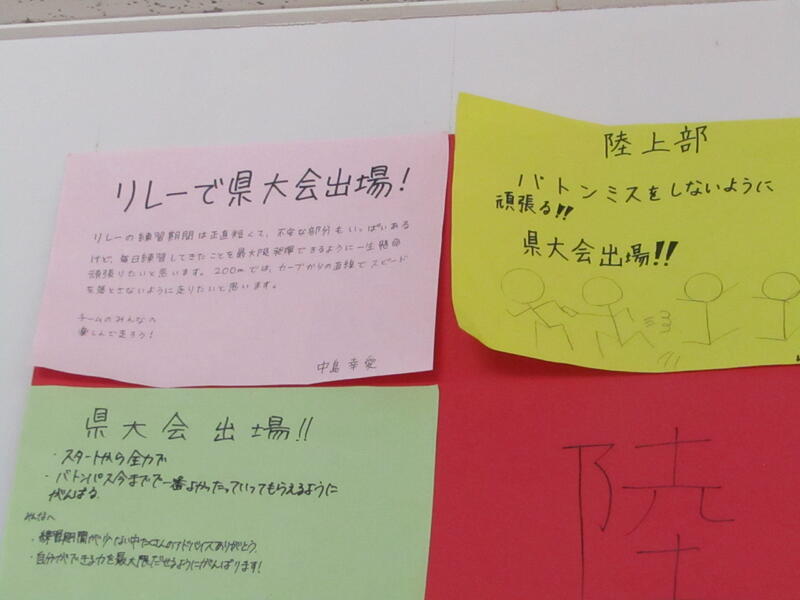 リレーで県大会出場!
リレーの練習期間は正直短くて、不安な部分もいっぱいある
けど、毎日練習してきたことを最大限発揮できるように一生懸命
頑張りたいと思います。200mでは、カーブからの直線でスピード
を落とさないように走りたいと思います。
チームのみんなの
楽しんで走ろう!
中島 幸愛
陸上部
バトンミスをしないように
頑張る!!
県大会出場!!
県大会出場!!
・スタートから全力で
・バトンパス今までで一番よかったっていってもらえるように
がんばる
みんなへ
・練習期間が少ない中たくさんのアドバイスありがとう
・自分ができる力を最大限だせるようにがんばります!
陸